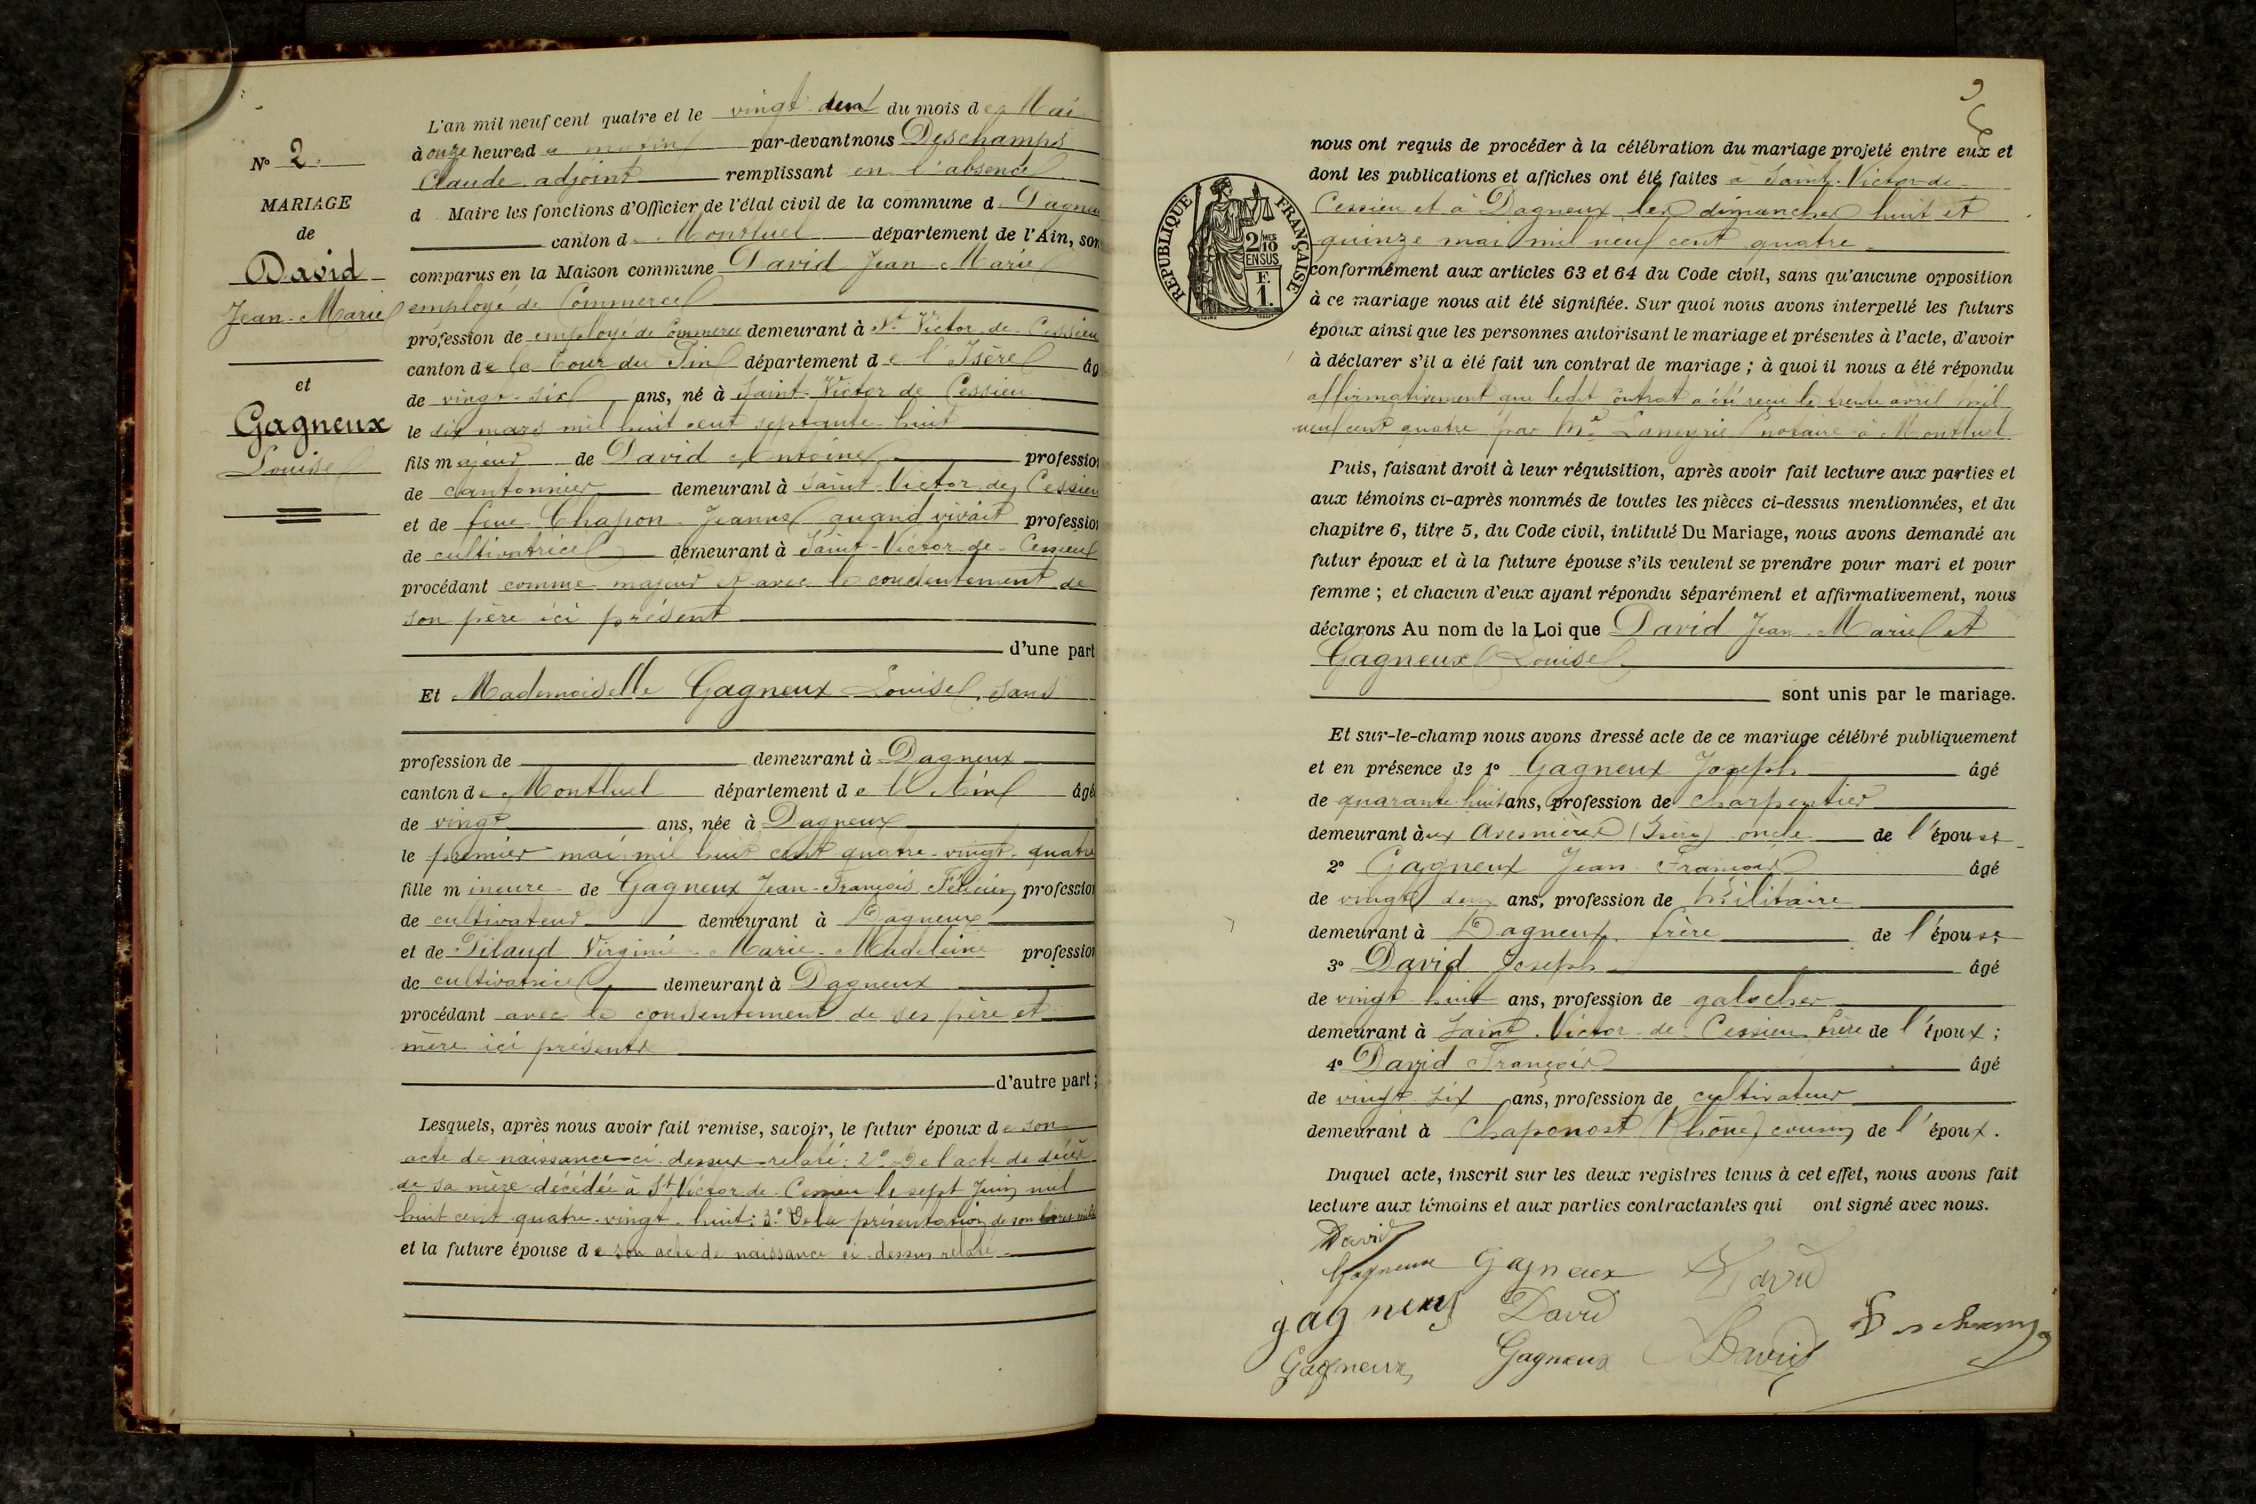 N° 2.
MARIAGE
de
David
Jean-Marie
et
Gagneux
Louise
L'an mil neuf cent quatre et le vingt deux du mois de Mai
à onze heures du matin par-devant nous Deschamps
Claude adjoint remplissant en l'absence
d Maire les fonctions d'Officier de l'état civil de la commune d Dagneux
canton de Montluel département de l'Ain, son
comparus en la Maison commune David Jean-Marie
employé de Commerce
profession de employé de Commerce demeurant à St Victor-de-Cessieu
canton de la Tour du Pin département de l'Isère âg
de vingt-six ans, né à Saint-Victor de Cessieu
le dix mars mil huit cent septante-huit
fils majeur de David Antoine profession
de cantonnier demeurant à Saint-Victor de Cessieu
et de feue Chapon Jeanne quand vivait profession
de cultivatrice demeurant à Saint-Victor-de-Cessieu
procédant comme majeur et avec le consentement de
son père ici présent
d'une part
Et Mademoiselle Gagneux Louise, sans
profession de demeurant à Dagneux
canton de Montluel département de l'Ain âgé
de vingt ans, née à Dagneux
le premier mai mil huit cent quatre-vingt-quatre
fille mineure de Gagneux Jean-François Félicien profession
de cultivateur demeurant à Dagneux
et de Pilaud Virginie-Marie-Madeleine profession
de cultivatrice demeurant à Dagneux
procédant avec le consentement de ses père et
mère ici présents
d'autre part;
Lesquels, après nous avoir fait remise, savoir, le futur époux de son
acte de naissance ci-dessus relaté: 2° De l'acte de décès
de sa mère décédée à St Victor de Cessieu le sept Juin mil
huit cent quatre-vingt-huit: 3° De la présentation de son livret milit
et la future épouse de son acte de naissance ci-dessus relaté
nous ont requis de procéder à la célébration du mariage projeté entre eux et
dont les publications et affiches ont été faites à Saint-Victor-de-
Cessieu et à Dagneux les dimanches huit et
quinze mai mil neuf cent quatre
RÉPUBLIQUE FRANÇAISE
2/10 MES
EN SUS
F.
1.
conformément aux articles 63 et 64 du Code civil, sans qu'aucune opposition
à ce mariage nous ait été signifiée. Sur quoi nous avons interpellé les futurs
époux ainsi que les personnes autorisant le mariage et présentes à l'acte, d'avoir
à déclarer s'il a été fait un contrat de mariage; à quoi il nous a été répondu
affirmativement que ledit contrat a été reçu le trente avril mil
neuf cent quatre par Me Laneyrie notaire à Montluel
Puis, faisant droit à leur réquisition, après avoir fait lecture aux parties et
aux témoins ci-après nommés de toutes les pièces ci-dessus mentionnées, et du
chapitre 6, titre 5, du Code civil, intitulé Du Mariage, nous avons demandé au
futur époux et à la future épouse s'ils veulent se prendre pour mari et pour
femme; et chacun d'eux ayant répondu séparément et affirmativement, nous
déclarons Au nom de la Loi que David Jean-Marie et
Gagneux Louise
sont unis par le mariage.
Et sur-le-champ nous avons dressé acte de ce mariage célébré publiquement
et en présence de 1° Gagneux Joseph âgé
de quarante-huit ans, profession de charpentier
demeurant aux Avenières (Isère) oncle de l'épouse
2° Gagneux Jean François âgé
de vingt deux ans, profession de militaire
demeurant à Dagneux frère de l'épouse
3° David Joseph âgé
de vingt-huit ans, profession de galocher
demeurant à Saint-Victor-de-Cessieu frère de l'époux;
4° David François âgé
de vingt-six ans, profession de cultivateur
demeurant à Chaponost (Rhône) cousin de l'époux.
Duquel acte, inscrit sur les deux registres tenus à cet effet, nous avons fait
lecture aux témoins et aux parties contractantes qui ont signé avec nous.
David
Gagneux Gagneux David
gagneux David Deschamps
Gagneux Gagneux David